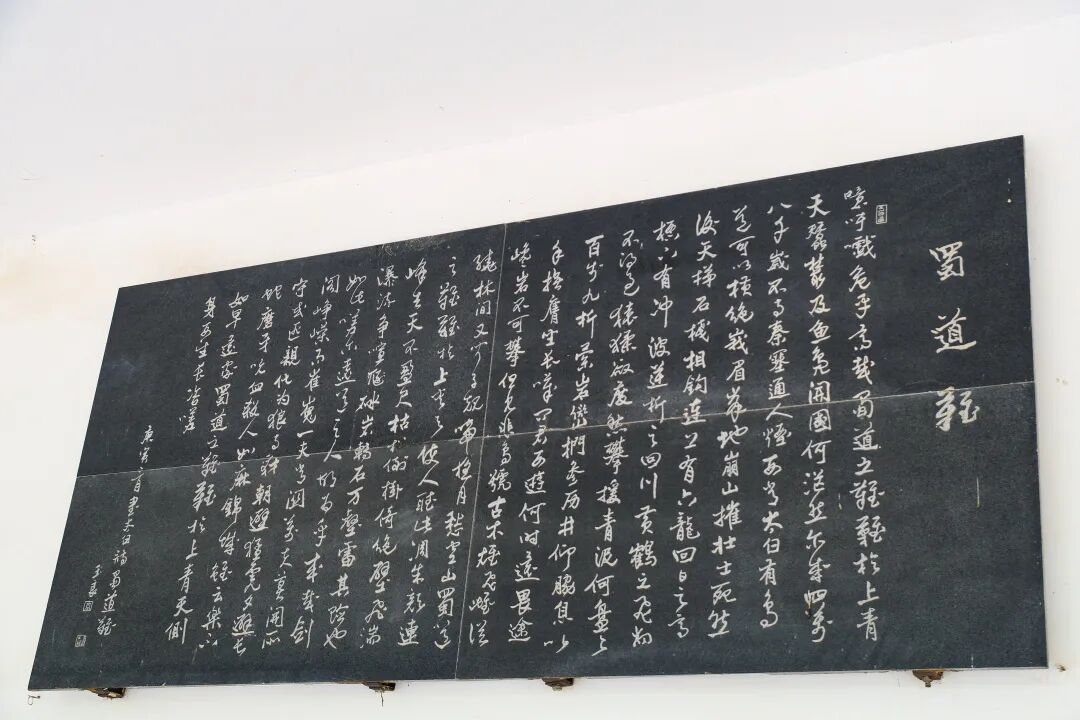 蜀道難
噫吁戲危乎高哉蜀道之難難於上青
天蠶叢及魚鳧開國何茫然尔來四萬
八千歲不与秦塞通人煙西當太白有鳥
道可以橫絕峨眉巔地崩山摧壮士死然
後天梯石棧相鈎連上有六龍回日之高
標下有冲波逆折之回川黄鶴之飛尚
不得過猿猱欲度愁攀援青泥何盤盤
百步九折縈岩巒捫参历井仰脇息以
手撫膺坐長嘆問君西遊何時還畏途
巉岩不可攀但見悲鳥號古木雄飛雌從
繞林間又聞子規啼夜月愁空山蜀道
之難難於上青天使人聽此凋朱顔連
峰去天不盈尺枯松倒掛倚絕壁飛湍
瀑流争喧豗砯崖轉石万壑雷其險也
如此嗟尔遠道之人胡為乎来哉劍
閣崢嶸而崔嵬一夫當関萬夫莫開所
守或匪親化为狼与豺朝避猛虎夕避長
蛇磨牙吮血殺人如麻錦城雖云樂不
如早還家蜀道之難難於上青天側
身西望長咨嗟
庚寅書太白詩蜀道難